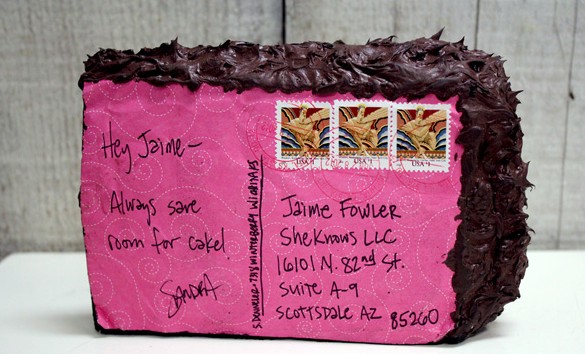 Hey Jaime—
Always save
room for cake!
SANDRA
Jaime Fowler
SheKnows LLC
16101 N. 82nd St.
Suite A-9
Scottsdale AZ 85260
USA
USA
USA